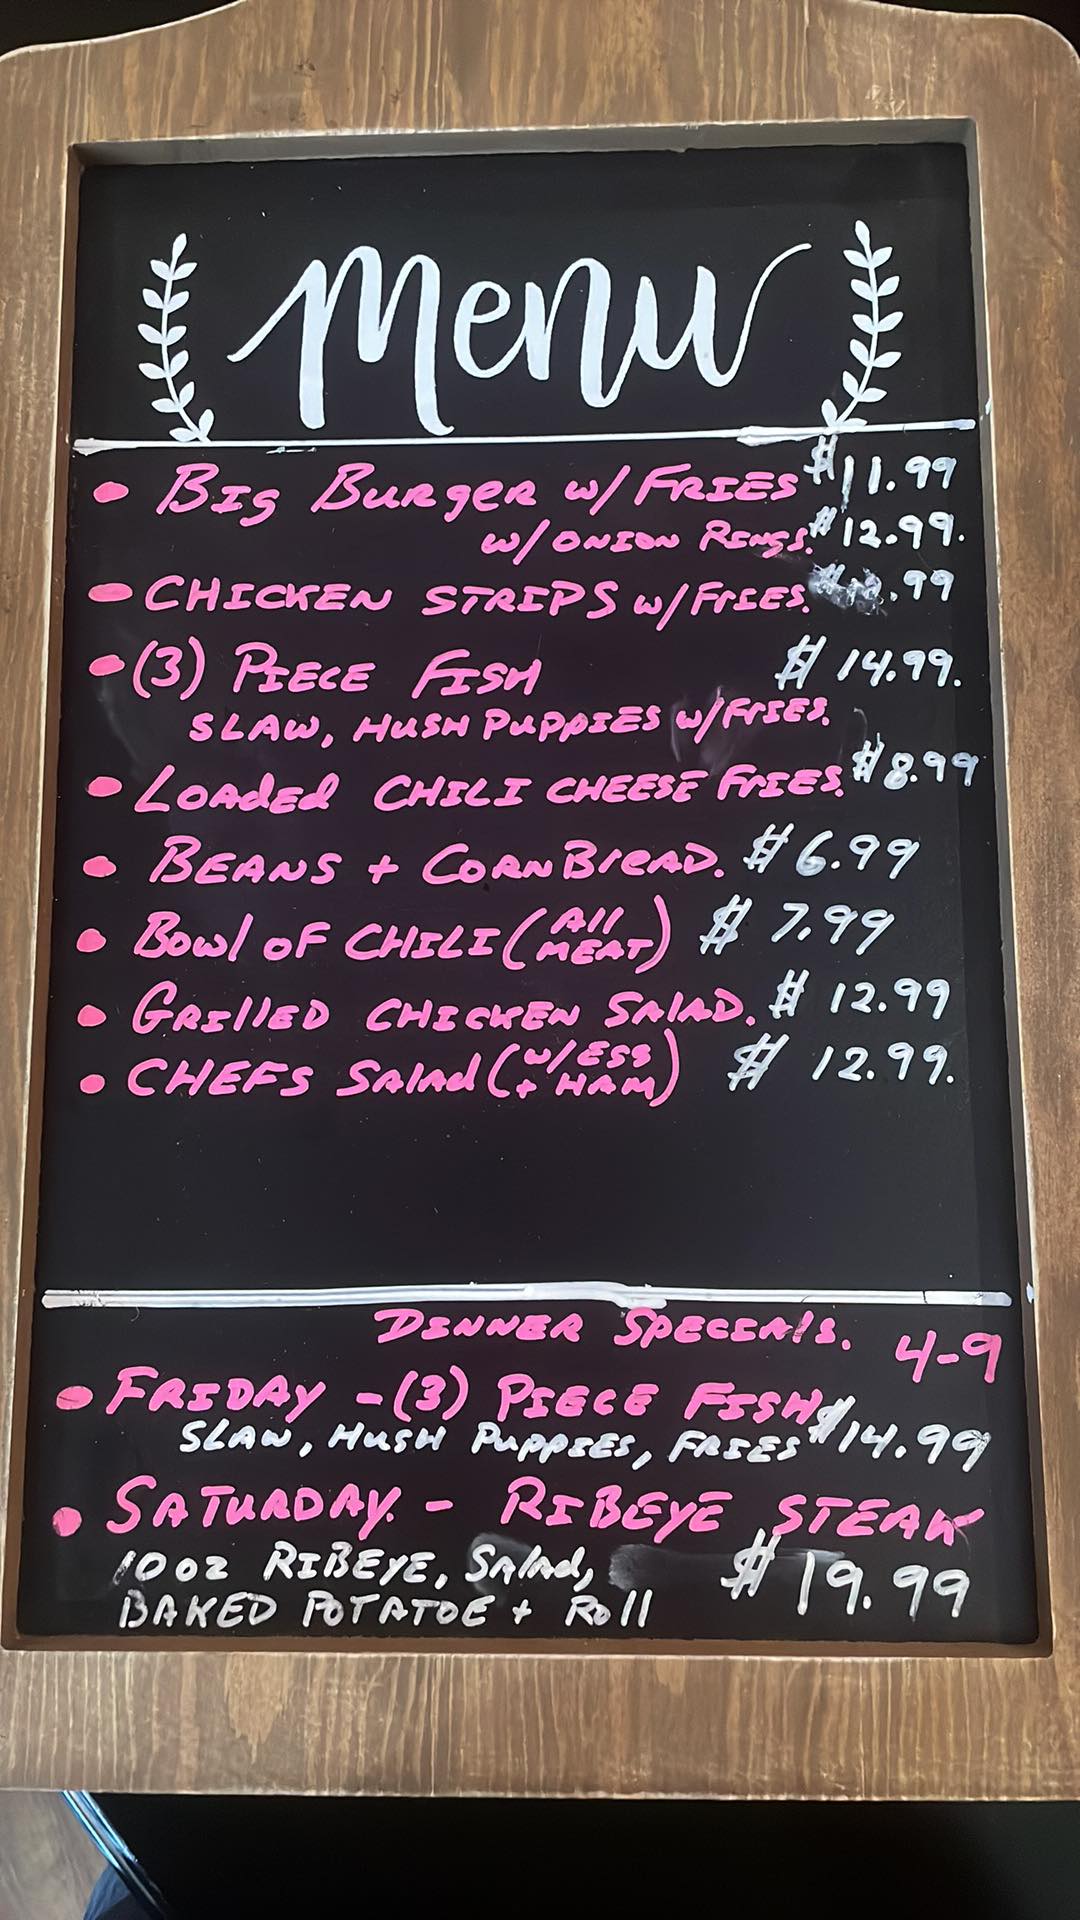 Menu
• BIg BURgER w/ FRIES $11.99
w/ ONION RINgS. $12.99.
• CHICKEN STRIPS w/ FrIES. .99
• (3) PIECE FISH $14.99.
SLAW, HUSH PUPPIES w/ FrIES.
• LOADed CHILI CHEESE FrIES. $8.99
• BEANS + CORNBrEAD. $6.99
• Bowl OF CHILI (All MEAT) $7.99
• GRIllED CHICKEN SAlAD. $12.99
• CHEFS SAlAd (w/ Egg + HAM) $12.99.
DINNER SPECIAlS. 4-9
• FRIDAY - (3) PIECE FISH $14.99
SLAW, HUSH PUPPIES, FRIES
• SATURDAY. - RIBEYE STEAK
10 oz RIBEYE, SAlAd, $19.99
BAKED POTATOE + Roll